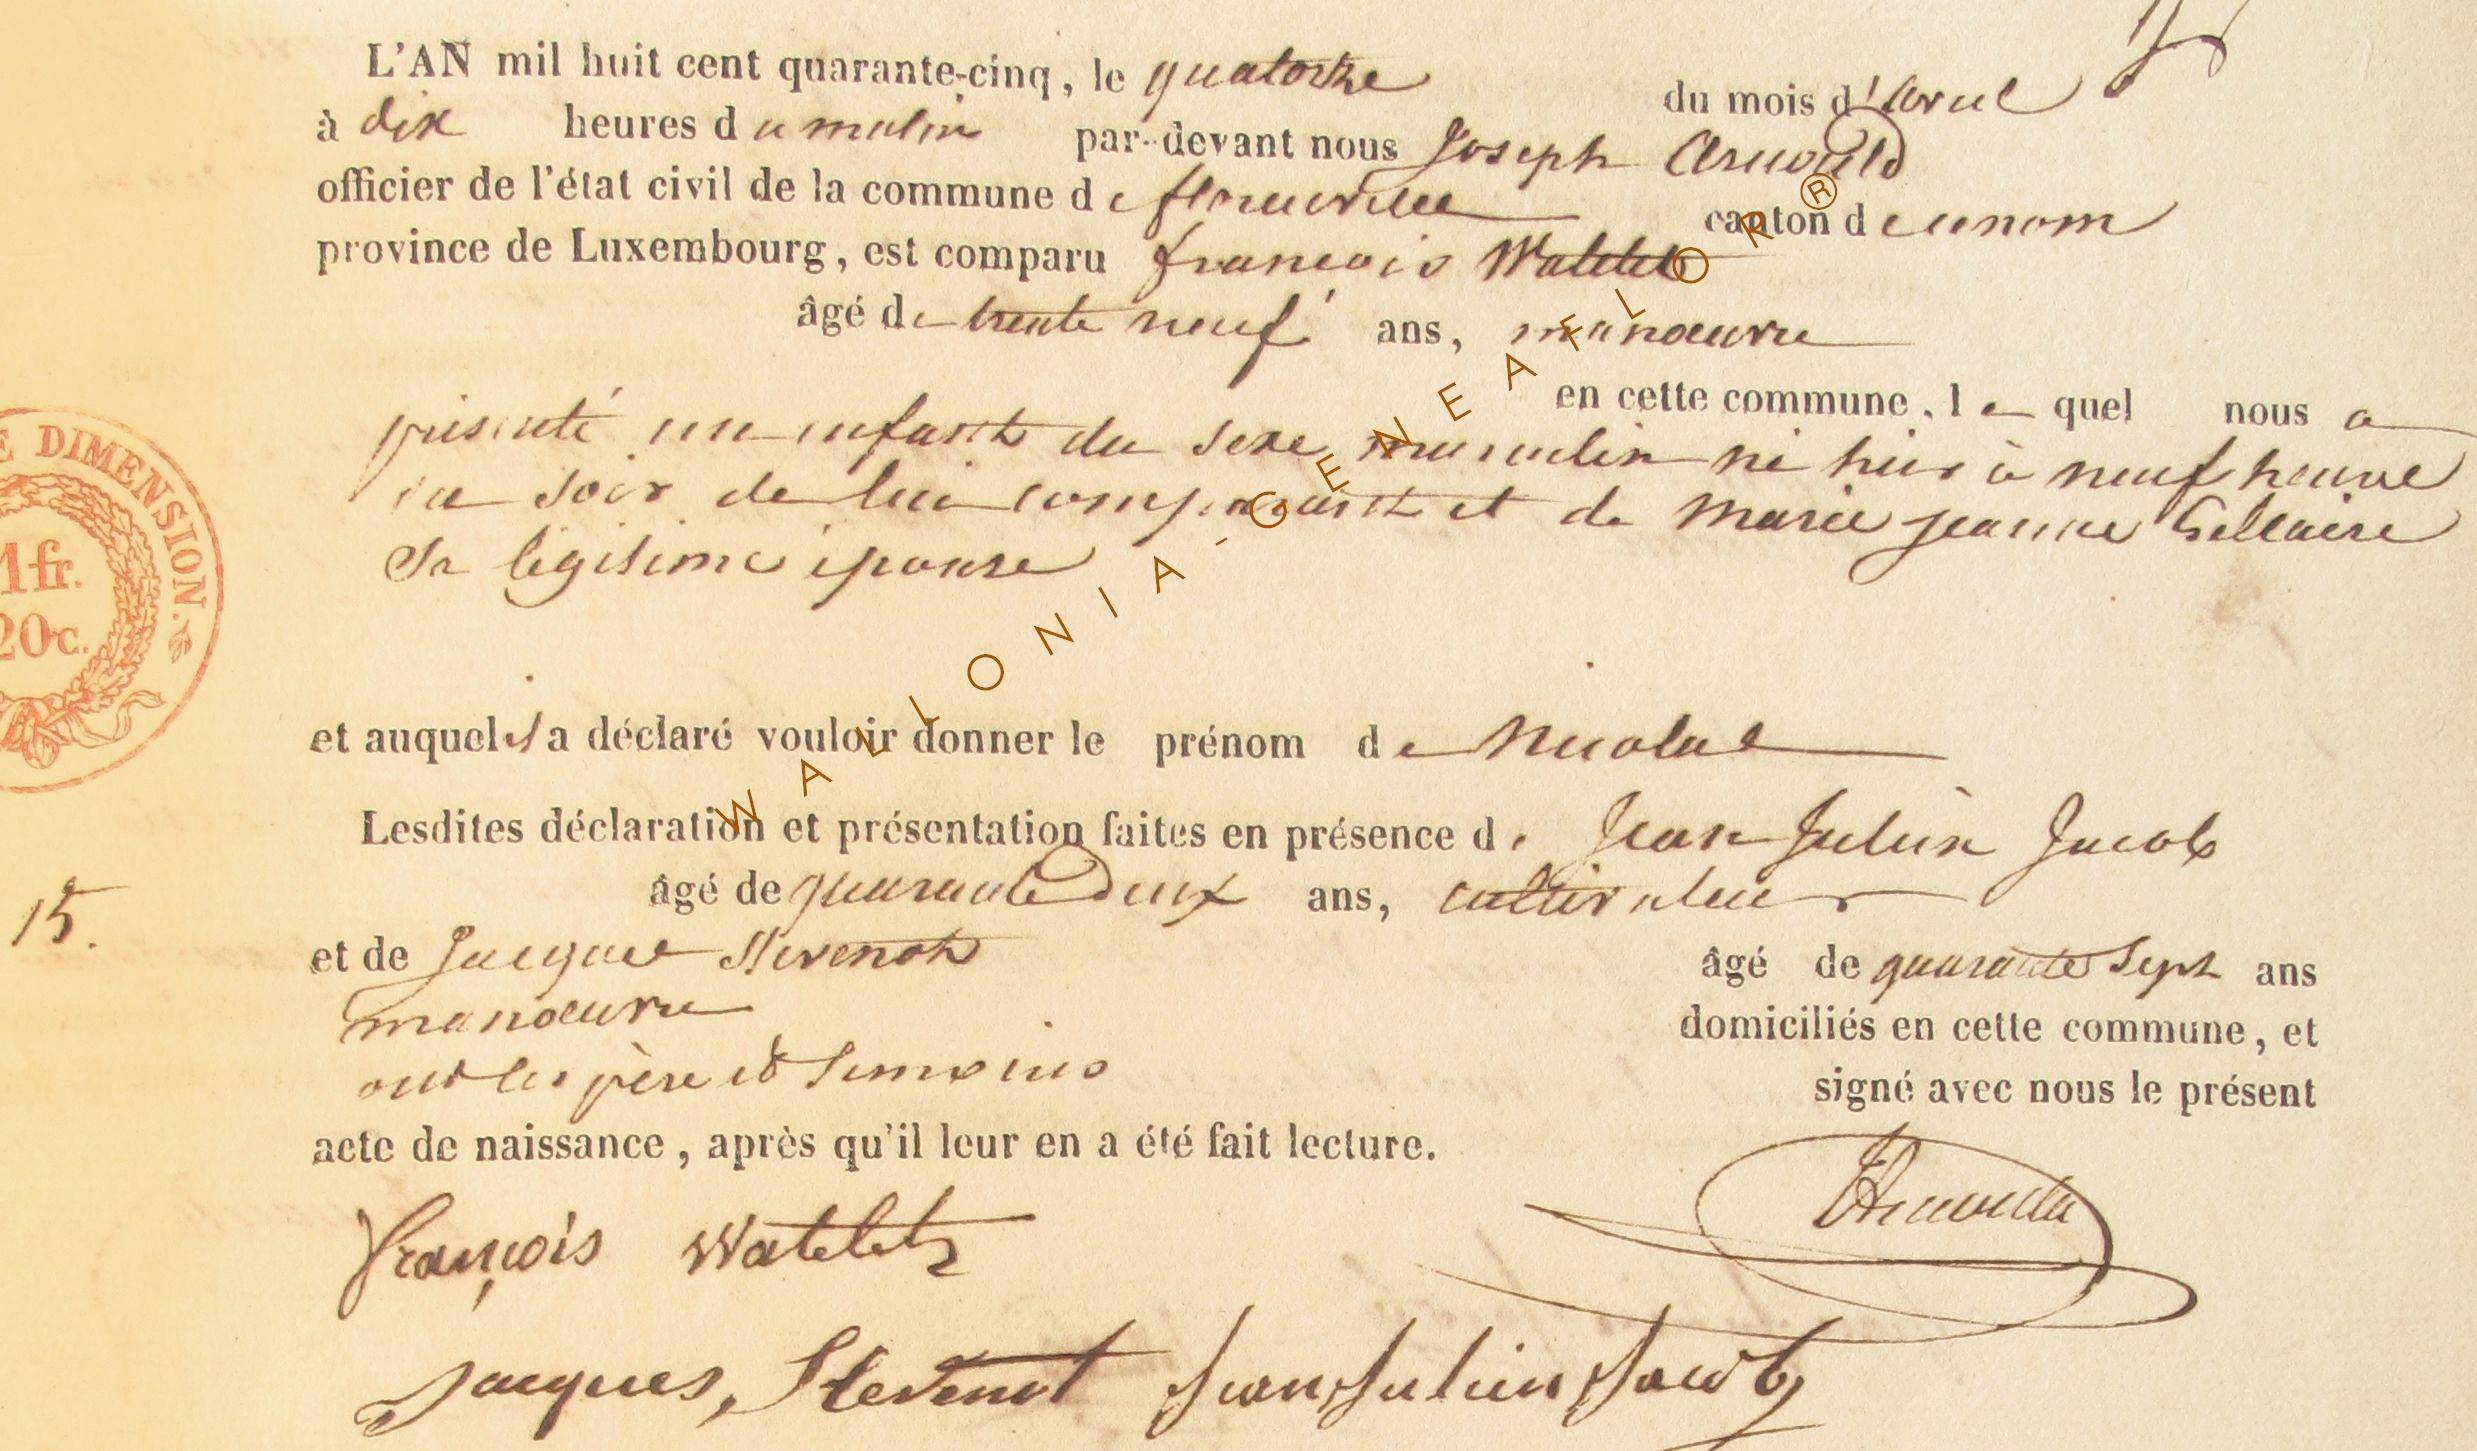 L'AN mil huit cent quarante-cinq, le quatorze du mois d'avril
à dix heures du matin par-devant nous Joseph Arnould
officier de l'état civil de la commune de florenville canton de ce nom
province de Luxembourg, est comparu françois Watelet
âgé de trente neuf ans, manœuvre
en cette commune, le quel nous a
présenté un enfant du sexe masculin né hier à neuf heures
du soir de lui comparant et de Marie jeanne
Sa légitime épouse
et auquel il a déclaré vouloir donner le prénom de Nicolas
Lesdites déclaration et présentation faites en présence de Jean Julien Jacob
âgé de quarante Deux ans, cultivateur
15.
et de Jacques Stevenot âgé de quarante Sept ans
manœuvre domiciliés en cette commune, et
ont les père et temoins signé avec nous le présent
acte de naissance, après qu'il leur en a été fait lecture.
françois Watelet
Jacques, Stevenot Jean Julien Jacob
DIMENSION.
1 fr.
20 c.
WALLONIA-GENEAFLOR®